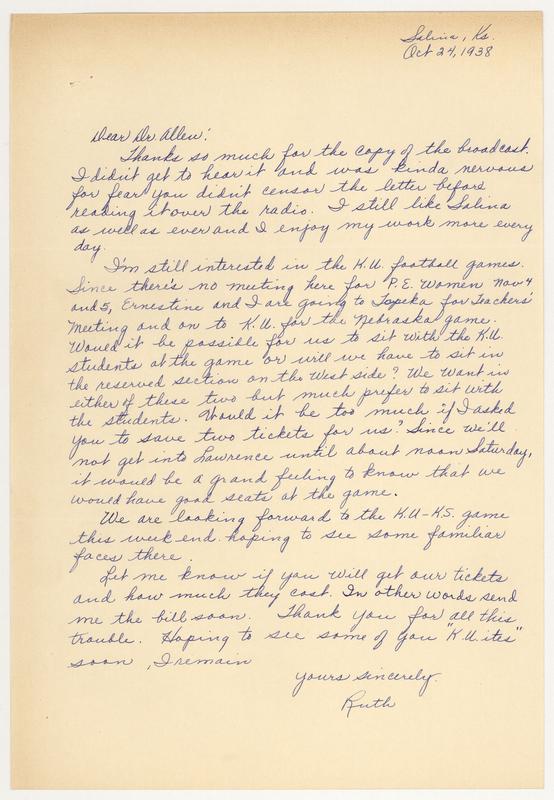 Salina, Ks.
Oct 24, 1938
Dear Dr. Allen:
Thanks so much for the copy of the broadcast.
I didn't get to hear it and was kinda nervous
for fear you didn't censor the letter before
reading it over the radio. I still like Salina
as well as ever and I enjoy my work more every
day.
I'm still interested in the K.U. football games.
Since there's no meeting here for P.E. Women Nov 4
and 5, Ernestine and I are going to Topeka for Teachers'
Meeting and on to K.U. for the Nebraska game.
Would it be possible for us to sit with the K.U.
students at the game or will we have to sit in
the reserved section on the West side? We want in
either of these two but much prefer to sit with
the students. Would it be too much if I asked
you to save two tickets for us? Since we'll
not get into Lawrence until about noon Saturday,
it would be a grand feeling to know that we
would have good seats at the game.
We are looking forward to the K.U-K.S. game
this week end hoping to see some familiar
faces there.
Let me know if you will get our tickets
and how much they cost. In other words send
me the bill soon. Thank you for all this
trouble. Hoping to see some of you "K.U.ites"
soon, I remain
Yours sincerely.
Ruth